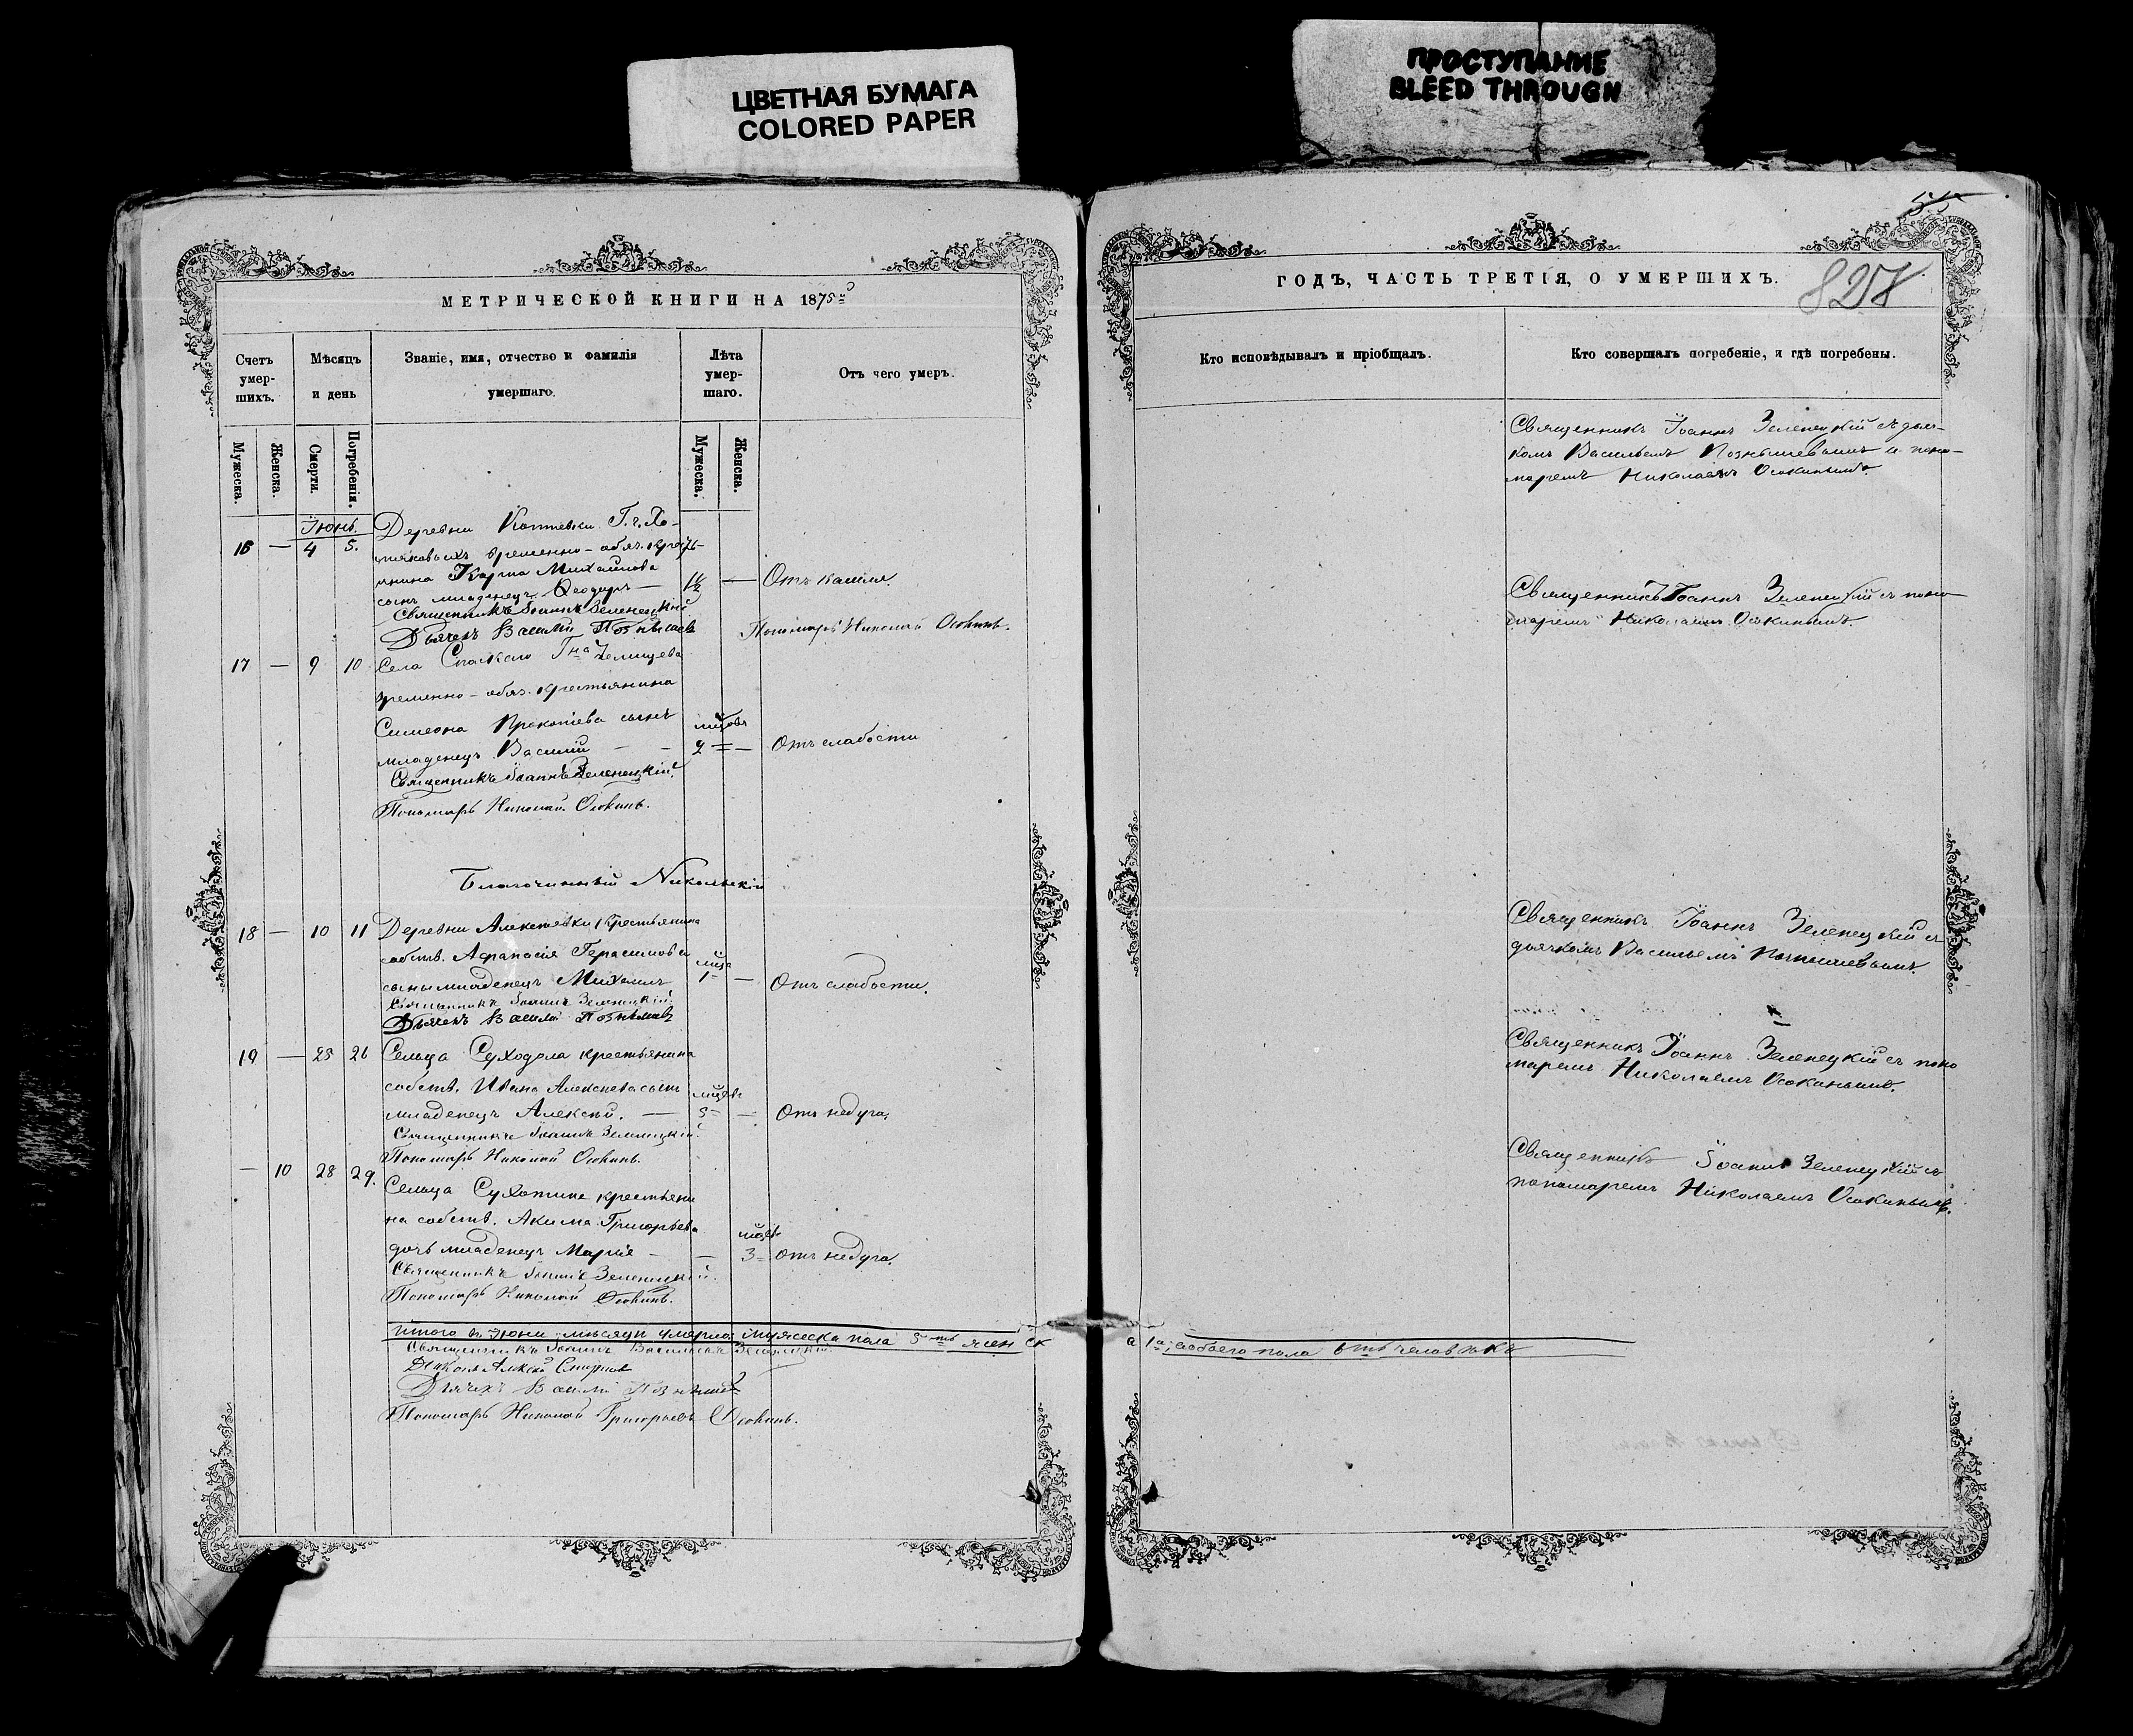 ЦВЕТНАЯ БУМАГА
COLORED PAPER
ПРОСТУПАНИЕ
BLEED THROUGH
МЕТРИЧЕСКОЙ КНИГИ НА 1875й
Счетъ умер-шихъ.
Мѣсяцъ и день
Званіе, имя, отчество и фамилія умершаго.
Лѣта умер-шаго.
Отъ чего умеръ.
Мужеска.
Женска.
Смерти.
Погребенія.
Мужеска.
Женска.
Іюнь.
16 — 4 5.
Деревни Коптевки Г. г. Хо-
мяковыхъ временно-обяз. крестья-
нина Карпа Михайлова
сынъ младенецъ Ѳеодоръ — — Отъ кашля.
Священникъ Іоаннъ Зеленецкій
Дьячекъ Василій Познышев Пономарь Николай Осокинъ.
17 — 9 10
Села Спаскаго Гна Челищева
временно-обяз. крестьянина
Симеона Прокопіева сынъ
младенецъ Василій — — 2 — Отъ слабости
Священникъ Іоаннъ Зеленецкій
Пономарь Николай Осокинъ.
Благочинный Никольскій
18 — 10 11
Деревни Алексѣевки крестьянина
собств. Аѳанасія Герасимова
сынъ младенецъ Михаилъ 1 — Отъ слабости.
Священникъ Іоаннъ Зеленецкій
Дьячекъ Василій Познышев
19 — 25 26
Сельца Суходола крестьянина
собств. Ивана Алексѣева сынъ
младенецъ Алексѣй. — 5 — Отъ недуга.
Священникъ Іоаннъ Зеленецкій
Пономарь Николай Осокинъ.
— 10 28 29.
Сельца Сухотина крестьяни
на собств. Акима Григорьева
дочь младенецъ Марія — — 3 Отъ недуга.
Священникъ Іоаннъ Зеленецкій.
Пономарь Николай Осокинъ.
Итого въ Іюни мѣсяцѣ умерло: мужеска пола 5ть женск
Священникъ Іоаннъ Васильевъ Зеленецкій.
Діаконъ Алексѣй Смирнов
Дьячекъ Василій Познышев
Пономарь Николай Григорьевъ Осокинъ.
55
828
ГОДЪ, ЧАСТЬ ТРЕТІЯ, О УМЕРШИХЪ.
Кто исповѣдывалъ и пріобщалъ.
Кто совершалъ погребеніе, и гдѣ погребены.
Священникъ Іоаннъ Зеленецкій съ дьяч-
комъ Васильемъ Познышевымъ и поно-
маремъ Николаемъ Осокинымъ.
Священникъ Іоаннъ Зеленецкій съ поно
маремъ Николаемъ Осокинымъ.
Священникъ Іоаннъ Зеленецкій съ
дьячкомъ Васильемъ Познышевымъ
Священникъ Іоаннъ Зеленецкій съ поно
маремъ Николаемъ Осокинымъ.
Священникъ Іоаннъ Зеленецкій съ
пономаремъ Николаемъ Осокинымъ.
а 1а; обоего пола 6ть человѣкъ